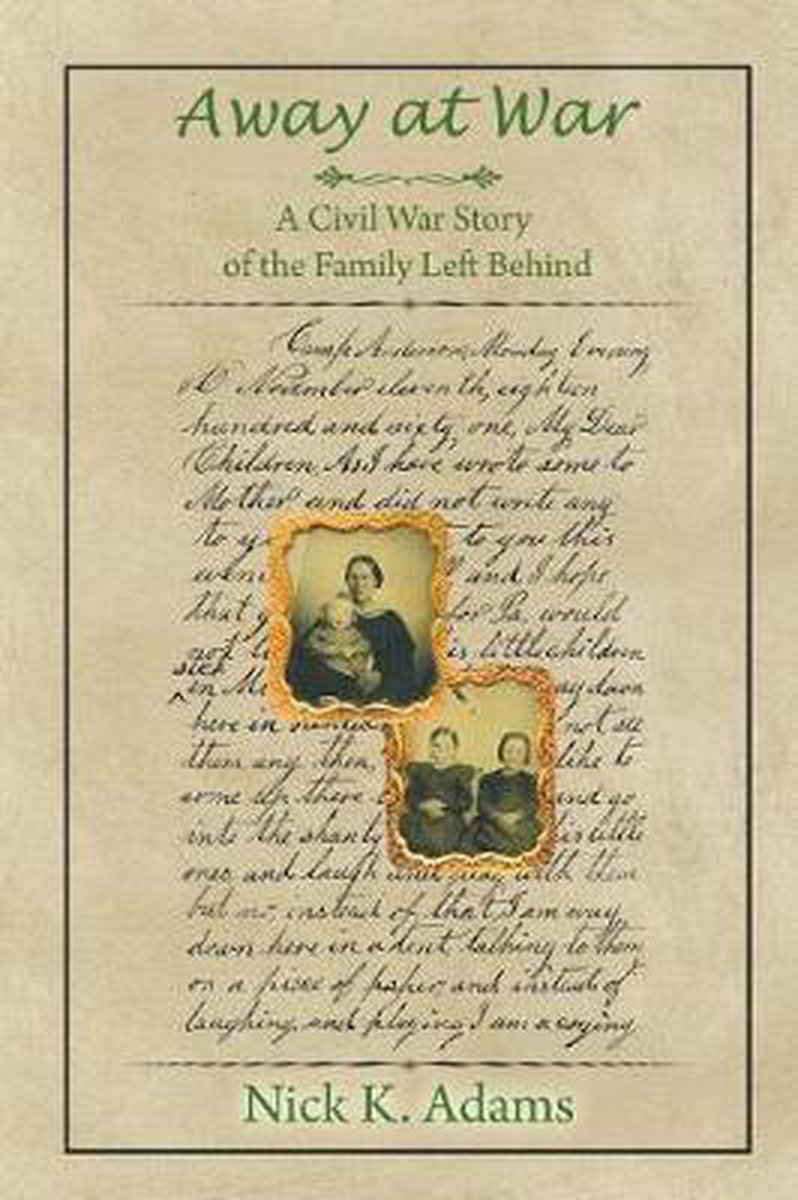 Away at War
A Civil War Story
of the Family Left Behind
Camp Anderson, Monday Evening
November eleventh, eighteen
hundred and sixty, one, My Dear
Children, As I have wrote some to
Mother and did not write any
to to you this
and I hope
that for Pa, would
not little children
sick
in down
here in not see
them any then, like to
come up there and go
into the shanty little
ones and laugh and with them
but no instead of that I am way
down here in a tent talking to them
on a piece of paper, and instead of
laughing, and playing, I am a crying
Nick K. Adams